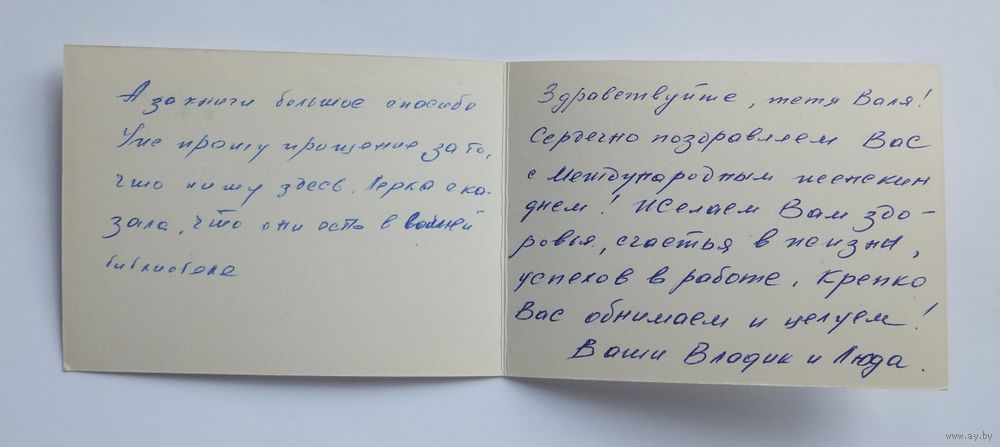 А за книги большое спасибо
Уже прошу прощение за то,
что пишу здесь. Лерка ска-
зала, что они есть в вашей
библиотеке
Здравствуйте, тетя Валя!
Сердечно поздравляем Вас
с Международным женским
днем! Желаем Вам здо-
ровья, счастья в жизни,
успехов в работе. Крепко
Вас обнимаем и целуем!
Ваши Владик и Люда.
www.ay.by